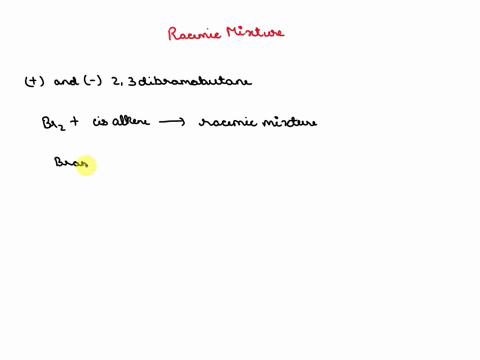 Racemic Mixture
(+) and (-) 2,3 dibramobutane
Br2 + cis alkene ⟶ racemic mixture
Bras